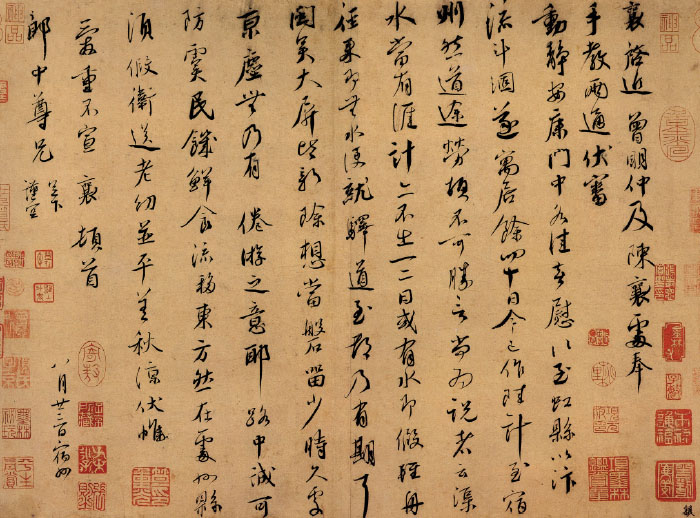 襄啓近曾明仲及陳襄處奉
手教兩通伏審
動靜安康門中各佳喜慰〻至虹縣以汴
流斗涸遂寓居餘四十日今已作陸計至宿
州然道途勞頓不可勝言尚為說者云渠
水當有涯計亦不出一二日或有水即假輕舟
徑來即無水便就驛道至都乃有期耳
閩吳大屏皆新除想當磐留少時久處
京塵無乃有倦游之意耶路中誠可
防虞民饑鮮食流移東方然在處州縣
須假衛送老幼並平善秋涼伏惟
愛重不宣襄頓首
郎中尊兄
足下
謹空
八月廿二日宿州